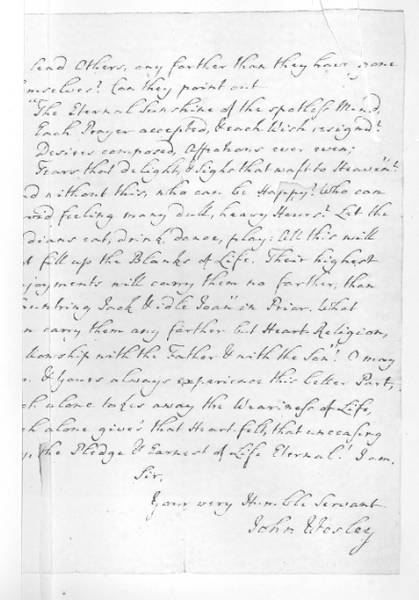 lend Others, any farther than they have gone
emselves? Can they point out
"The Eternal Sunshine of the spotless Mind,
Each Prayer accepted, & each Wish resign'd?
Desires composed, Affections ever even;
Tears that delight, & Sighs that waft to Heaven"?
d without this, who can be Happy? Who can
oid feeling many dull, heavy Hours? Let the
dians eat, drink, dance, play: All this will
t fill up the Blanks of Life. Their highest
joyments will carry them no farther, than
untring Jack & idle Joan" in Prior. What
n carry them any farther but Heart-Religion,
lowship with the Father & with the Son"! O may
u & yours always experience this better Part,
ch alone takes away the Weariness of Life,
ch alone gives that Heart-felt, that unceasing
y, the Pledge & Earnest of Life Eternal! I am
Sir,
Your very Humble Servant
John Wesley